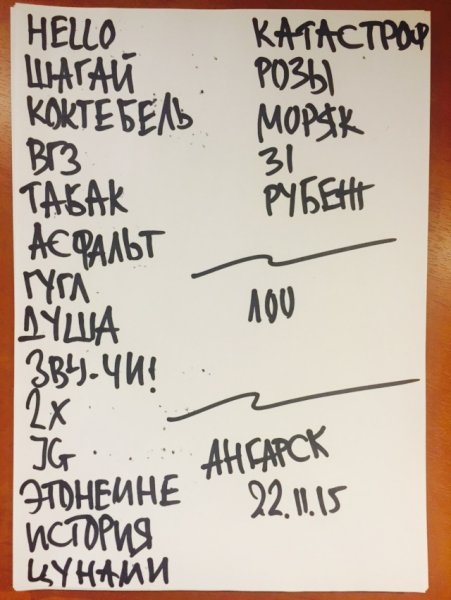 HELLO
ШАГАЙ
КОКТЕБЕЛЬ
ВГЗ
ТАБАК
АСФАЛЬТ
ГУГЛ
ДУША
ЗВУЧИ!
2X
JG
ЭТОНЕИНЕ
ИСТОРИЯ
ЦУНАМИ
КАТАСТРОФ
РОЗЫ
МОРЯК
31
РУБЕЖ
LOU
АНГАРСК
22.11.15